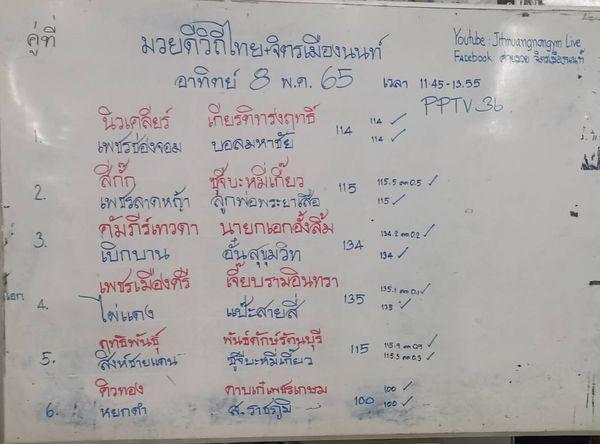 คู่ที่
มวยดีวิถีไทย+จิตรเมืองนนท์
Youtube: Jitmuangnongym Live
Facebook ค่ายมวย จิตรเมืองนนท์
อาทิตย์ 8 พ.ค. 65 เวลา 11:45-13:55
PPTV_36
1. นิวเคลียร์ เกียรติทรงฤทธิ์ 114 114 ✓
เพชรช่องจอม บอลมหาชัย 114 ✓
2. สี่กั๊ก ซุ้จีบะหมี่เกี๊ยว 115 115.5 ✓
เพชรลาดหญ้า ลูกพ่อพระยาเสือ 115 ✓
3. คัมภีร์เทวดา นายกเอกอั้งลิ้ม 134 134.2 ✓
เบิกบาน อั๋นสุขุมวิท 134 ✓
4. เพชรเมืองศรี เจี๊ยบรามอินทรา 135 135.1 ✓
ไผ่แดง แป๊ะสายสี่ 135 ✓
5. ฤทธิพันธุ์ พันธ์ดักษ์รัตนบุรี 115 115.9 ✓
สิงห์ชายแดน ซุ้จีบะหมี่เกี๊ยว 115.3 ✓
6. ดิวทอง ดาบเก๋เพชรเกษม 100 100 ✓
หยกดำ ส.ราชภูมิ 100 ✓